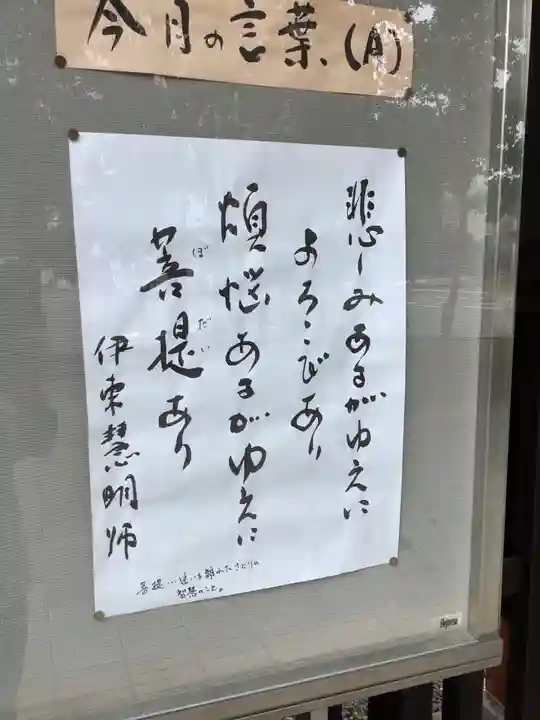 今月の言葉(A)
悲しみあるがゆえに
よろこびあり
煩悩あるがゆえに
菩提あり
ぼだい
伊東慧明師
菩提…迷いを離れたさとりの
智慧のこと。